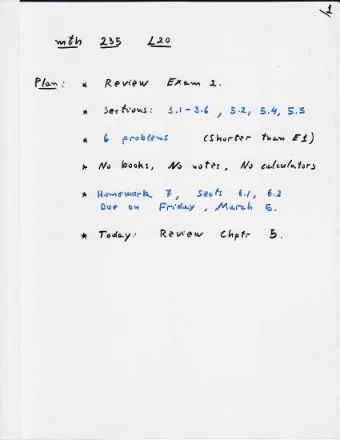 1
mth 235 L20
Plan: * Review Exam 2.
* Sections: 3.1-3.6, 5.2, 5.4, 5.5
* 6 problems (Shorter than E1)
* No books, No notes, No calculators
* Homework 7, Sects 6.1, 6.2
Due on Friday, March 5.
* Today: Review Chptr 5.